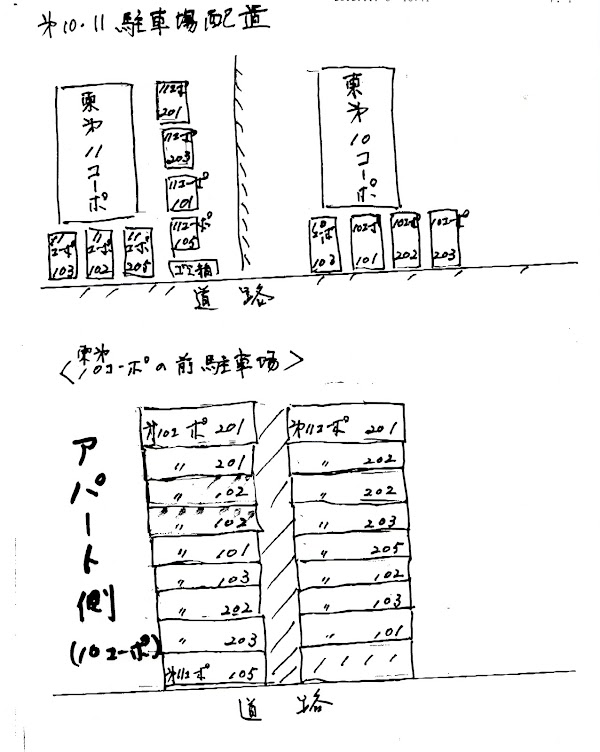 才10.11 駐車場配置
東才11コーポ
11コーポ 201
11コーポ 203
11コーポ 101
11コーポ 105
11コーポ 103
11コーポ 102
11コーポ 205
ゴミ箱
東才10コーポ
10コーポ 103
10コーポ 101
10コーポ 202
10コーポ 203
道路
〈東才10コーポの前駐車場〉
アパート側
(10コーポ)
才10コーポ 201
〃 201
〃 102
〃 102
〃 101
〃 103
〃 202
〃 203
才11コーポ 105
才11コーポ 201
〃 202
〃 202
〃 203
〃 205
〃 102
〃 103
〃 101
道路